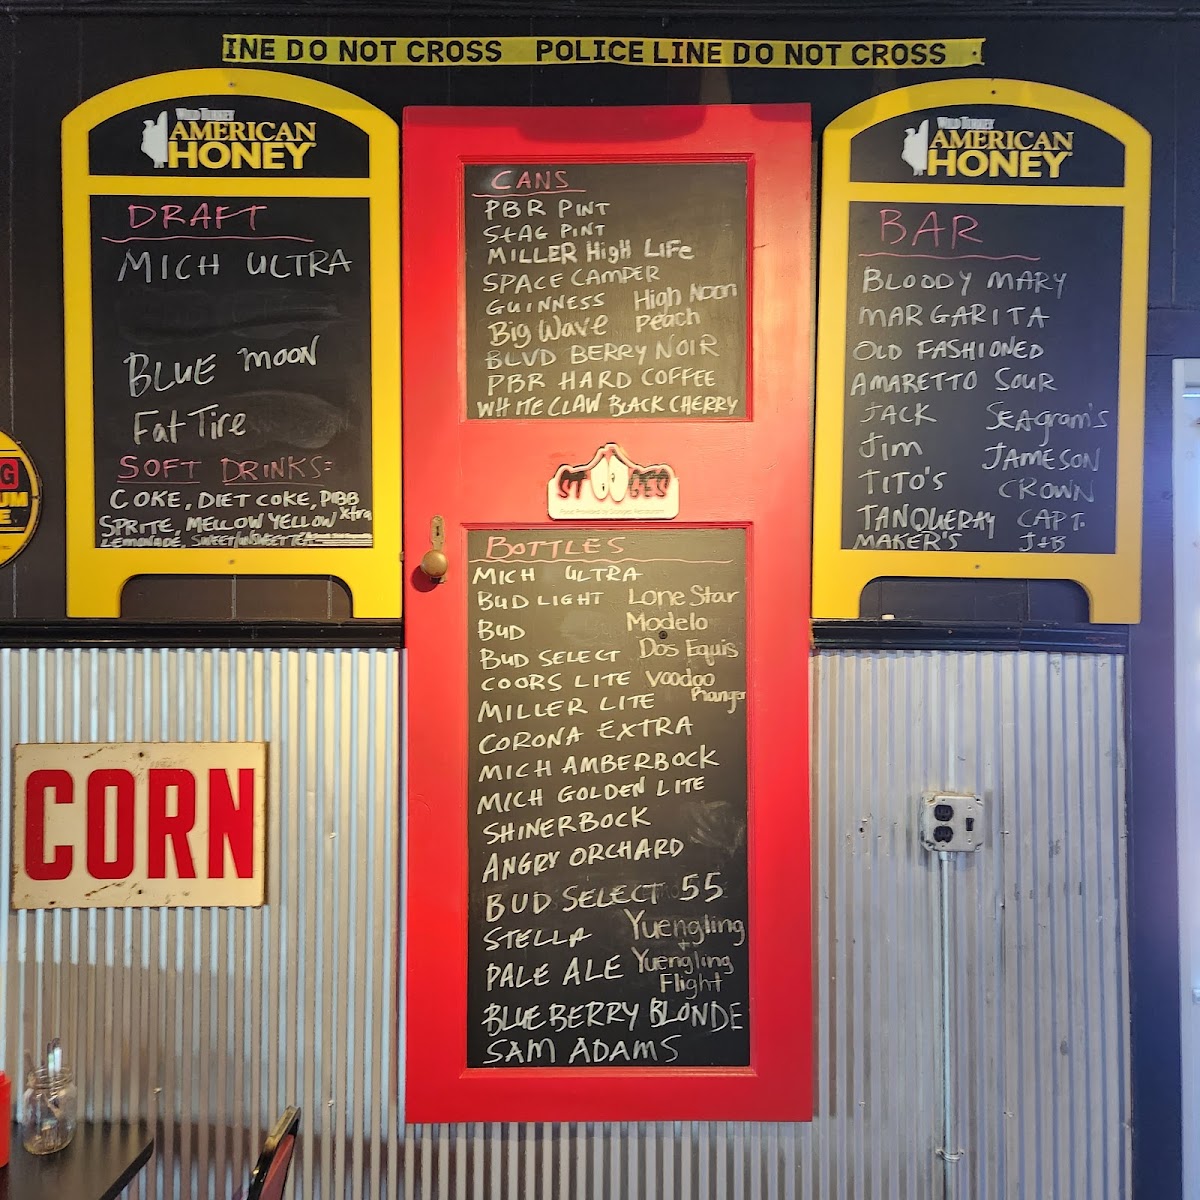 INE DO NOT CROSS POLICE LINE DO NOT CROSS
WILD TURKEY
AMERICAN
HONEY
DRAFT
MICH ULTRA
BLUE MOON
Fat Tire
SOFT DRINKS:
COKE, DIET COKE, PIBB
Xtra
SPRITE, MELLOW YELLOW
LEMONADE, SWEET/UNSWEET TEA
CANS
PBR PINT
STAG PINT
MILLER HIGH LIFE
SPACE CAMPER
GUINNESS High Noon
Big Wave Peach
BLVD BERRY NOIR
PBR HARD COFFEE
WHITE CLAW BLACK CHERRY
STOOGES
Food Provided by Stooges Restaurant
BOTTLES
MICH ULTRA
BUD LIGHT Lone Star
BUD Modelo
BUD SELECT Dos Equis
COORS LITE Voodoo
Ranger
MILLER LITE
CORONA EXTRA
MICH AMBERBOCK
MICH GOLDEN LITE
SHINERBOCK
ANGRY ORCHARD
BUD SELECT 55
STELLA Yuengling
+
PALE ALE Yuengling
Flight
BLUEBERRY BLONDE
SAM ADAMS
WILD TURKEY
AMERICAN
HONEY
BAR
BLOODY MARY
MARGARITA
OLD FASHIONED
AMARETTO SOUR
JACK SEAgram's
Jim JAMESON
TITO'S CROWN
TANQUERAY CAPT.
MAKER'S J+B
G
UM
E
CORN